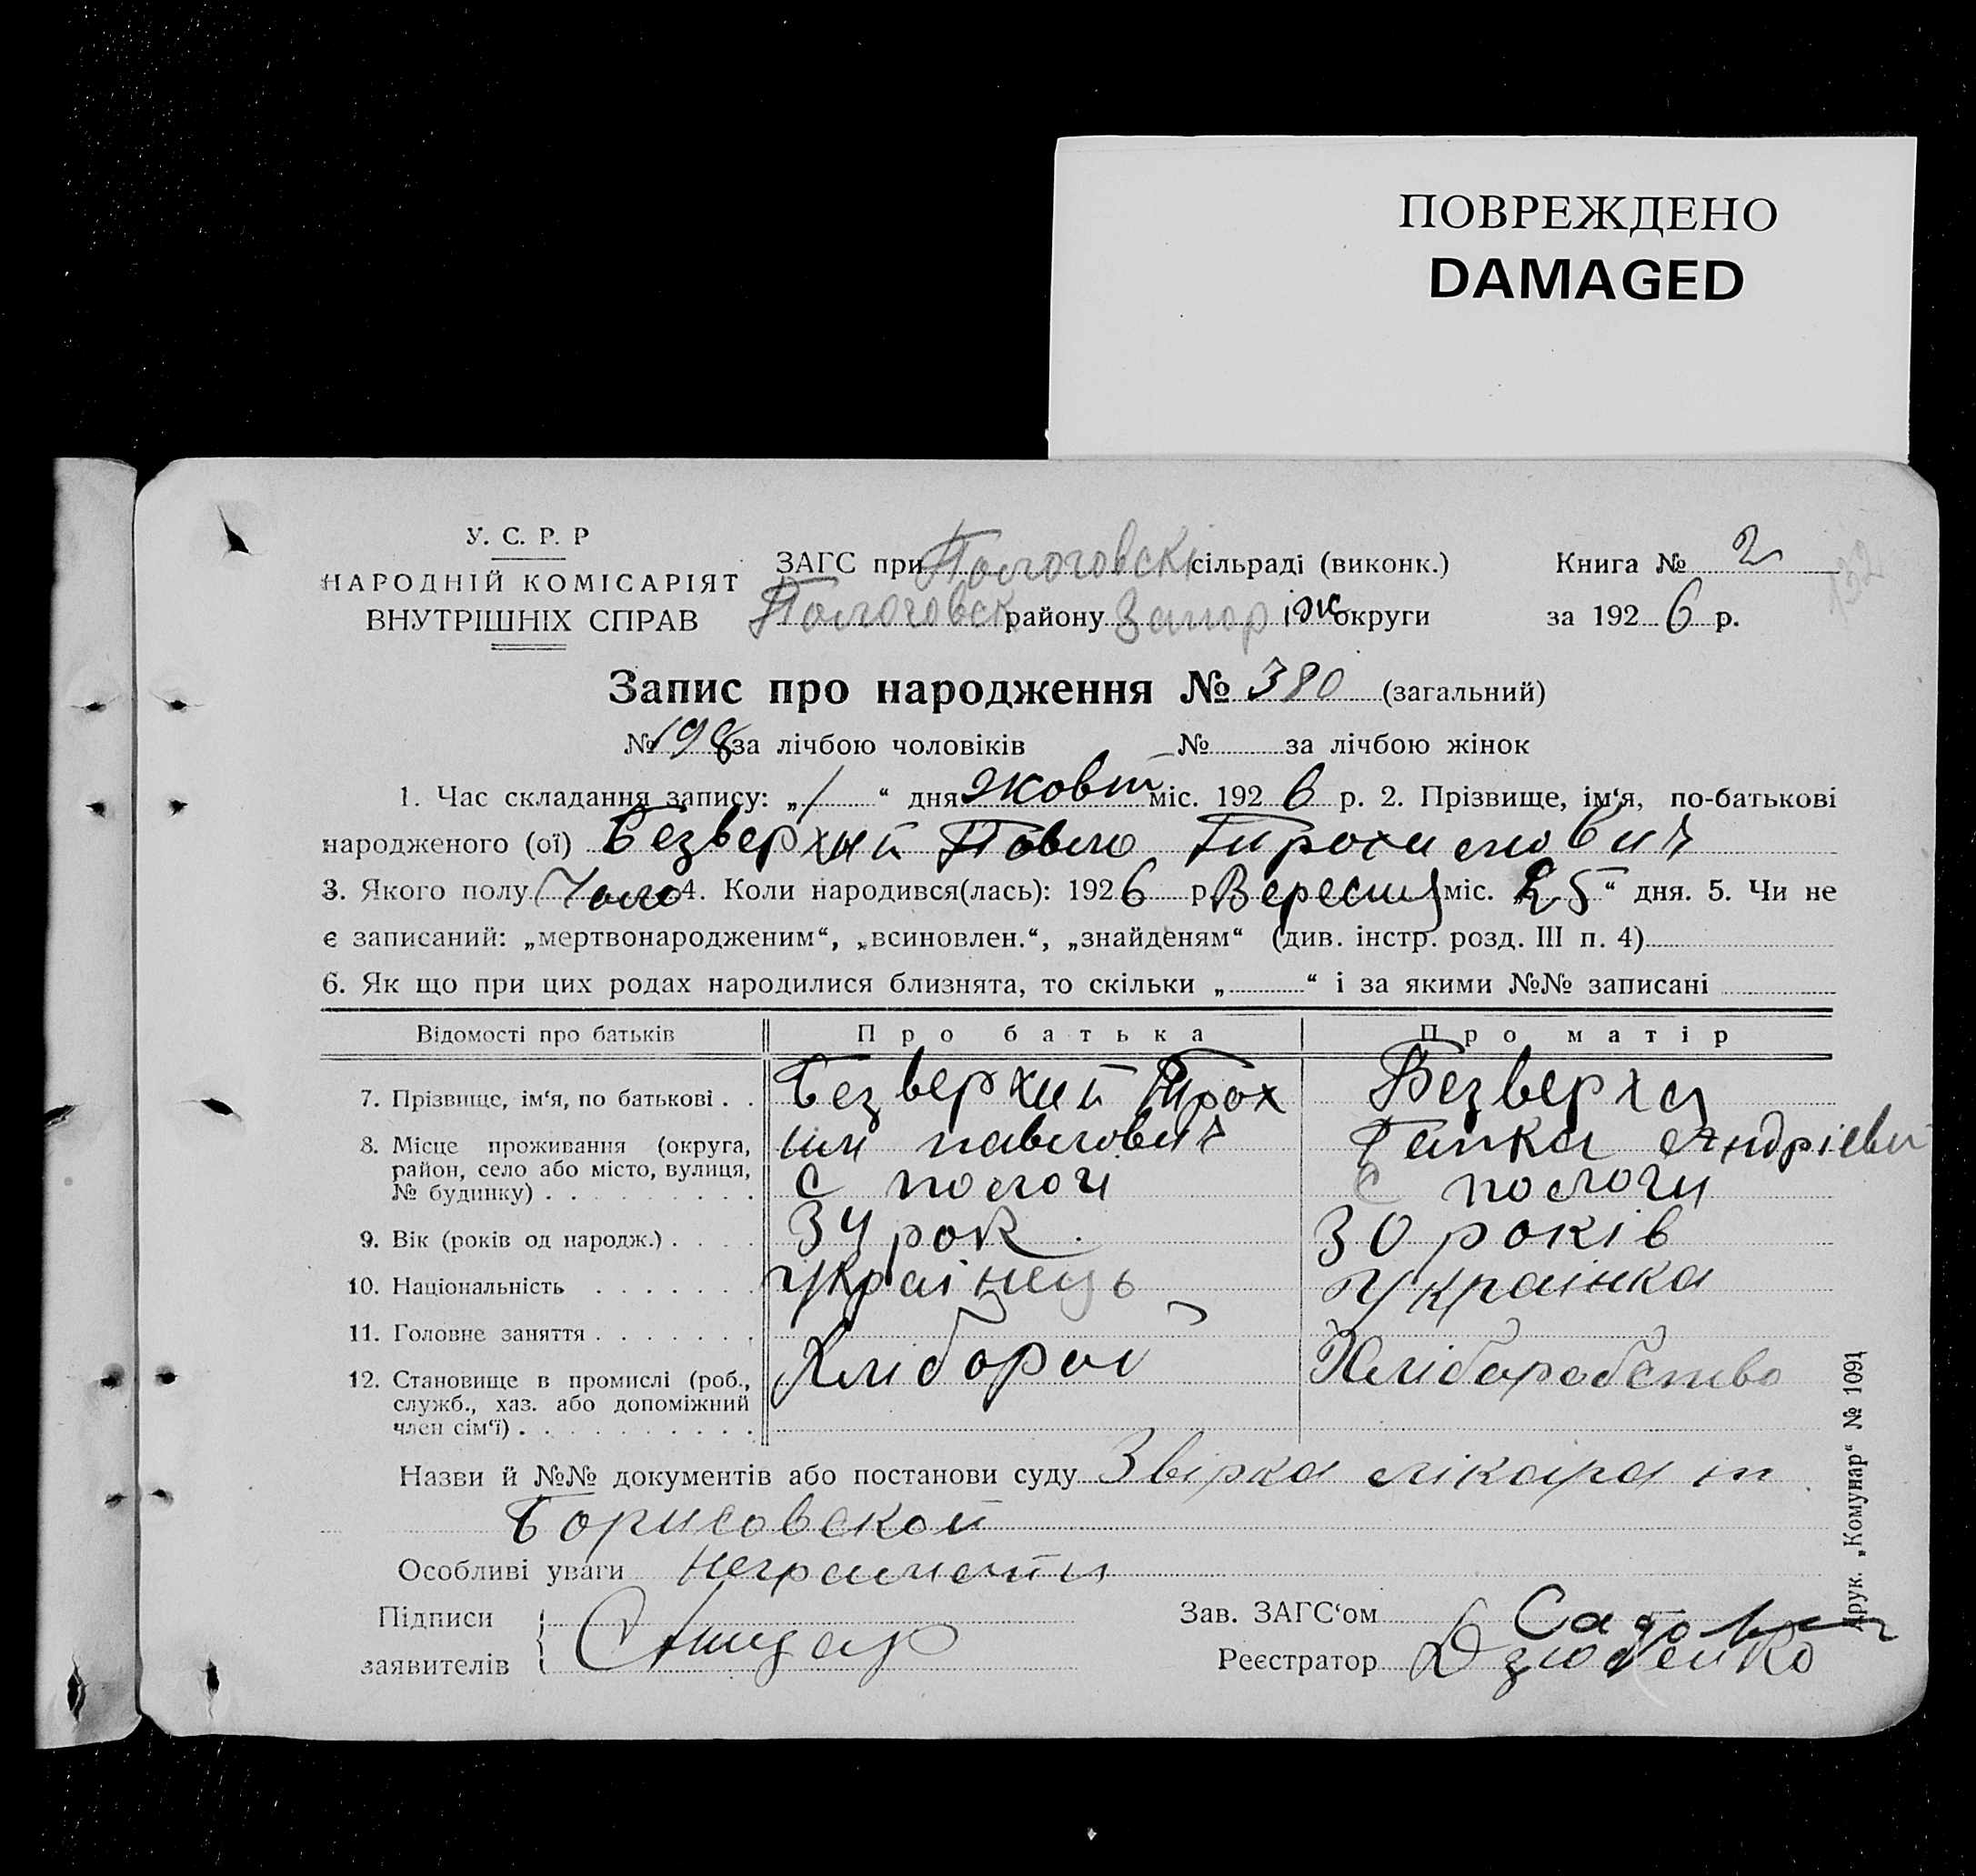 ПОВРЕЖДЕНО
DAMAGED
У. С. Р. Р
НАРОДНІЙ КОМІСАРІЯТ
ВНУТРІШНІХ СПРАВ
ЗАГС при Пологовскі сільраді (виконк.)
Пологовск району Запоріж округи
Книга № 2
за 1926 р.
132
Запис про народження № 380 (загальний)
№ 198 за лічбою чоловіків № за лічбою жінок
1. Час складання запису: „1“ дня жовт міс. 1926 р. 2. Прізвище, ім‘я, по-батькові
народженого (ої) Безверхий Павло Трохимович
3. Якого полу Чоло 4. Коли народився(лась): 1926 р. Вересня міс. „25“ дня. 5. Чи не
є записаний: „мертвонародженим“, „всиновлен.“, „знайденям“ (див. інстр. розд. III п. 4)
6. Як що при цих родах народилися близнята, то скільки „ “ і за якими №№ записані
Відомості про батьків Про батька Про матір
7. Прізвище, ім‘я, по батькові . . Безверхий Трох Безверха
8. Місце проживання (округа, им павлович Гапка Андріеви
район, село або місто, вулиця,
№ будинку) . . . . . . . . . с пологи с пологи
9. Вік (років од народж.) . . . . 34 рок. 30 років
10. Національність . . . . . . . українець українка
11. Головне заняття . . . . . . .
12. Становище в промислі (роб., Хлібороб Хліборобство
служб., хаз. або допоміжний
член сім‘ї) . . . . . . . . . .
Назви й №№ документів або постанови суду Звірка лікара
Борисовской
Особливі уваги неграмотни
Підписи
заявителів
Зав. ЗАГС‘ом
Реєстратор Дзюбенко
Друк. „Комунар“ № 1091